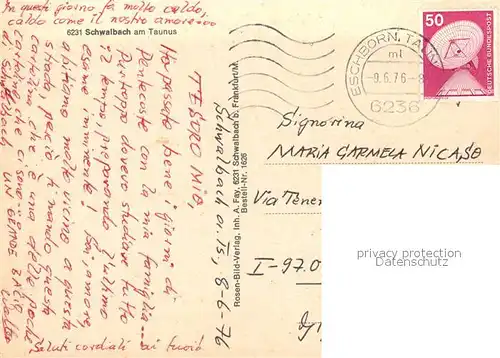 In questi giorni fa molto caldo,
caldo come il nostro amore
6231 Schwalbach am Taunus
TESORO MIO,
Ho passato bene i giorni di
Pentecoste con la mia famiglia...
Purtroppo dovevo studiare tutto
il tempo preparando l'ultimo
esame imminente! Sai, amore,
abitiamo molto vicino a questa
strada, perciò ti mando questa
cartolina che è una delle poche
cartoline che ci sono
di Schwalbach
UN GRANDE BACIO
Saluti cordiali ai tuoi
Schwalbach a. Ts, 8-6-76
Rosen-Bild-Verlag, Inh. A. Fay, 6231 Schwalbach b. Frankfurt/M.
Bestell-Nr. 1626
ESCHBORN, TAUNUS
ml
-9.6.76-8
6236
50
DEUTSCHE BUNDESPOST
Signorina
MARIA CARMELA NICASO
Via
I-970
privacy protection
Copyright @ ansichtskarten-lexikon